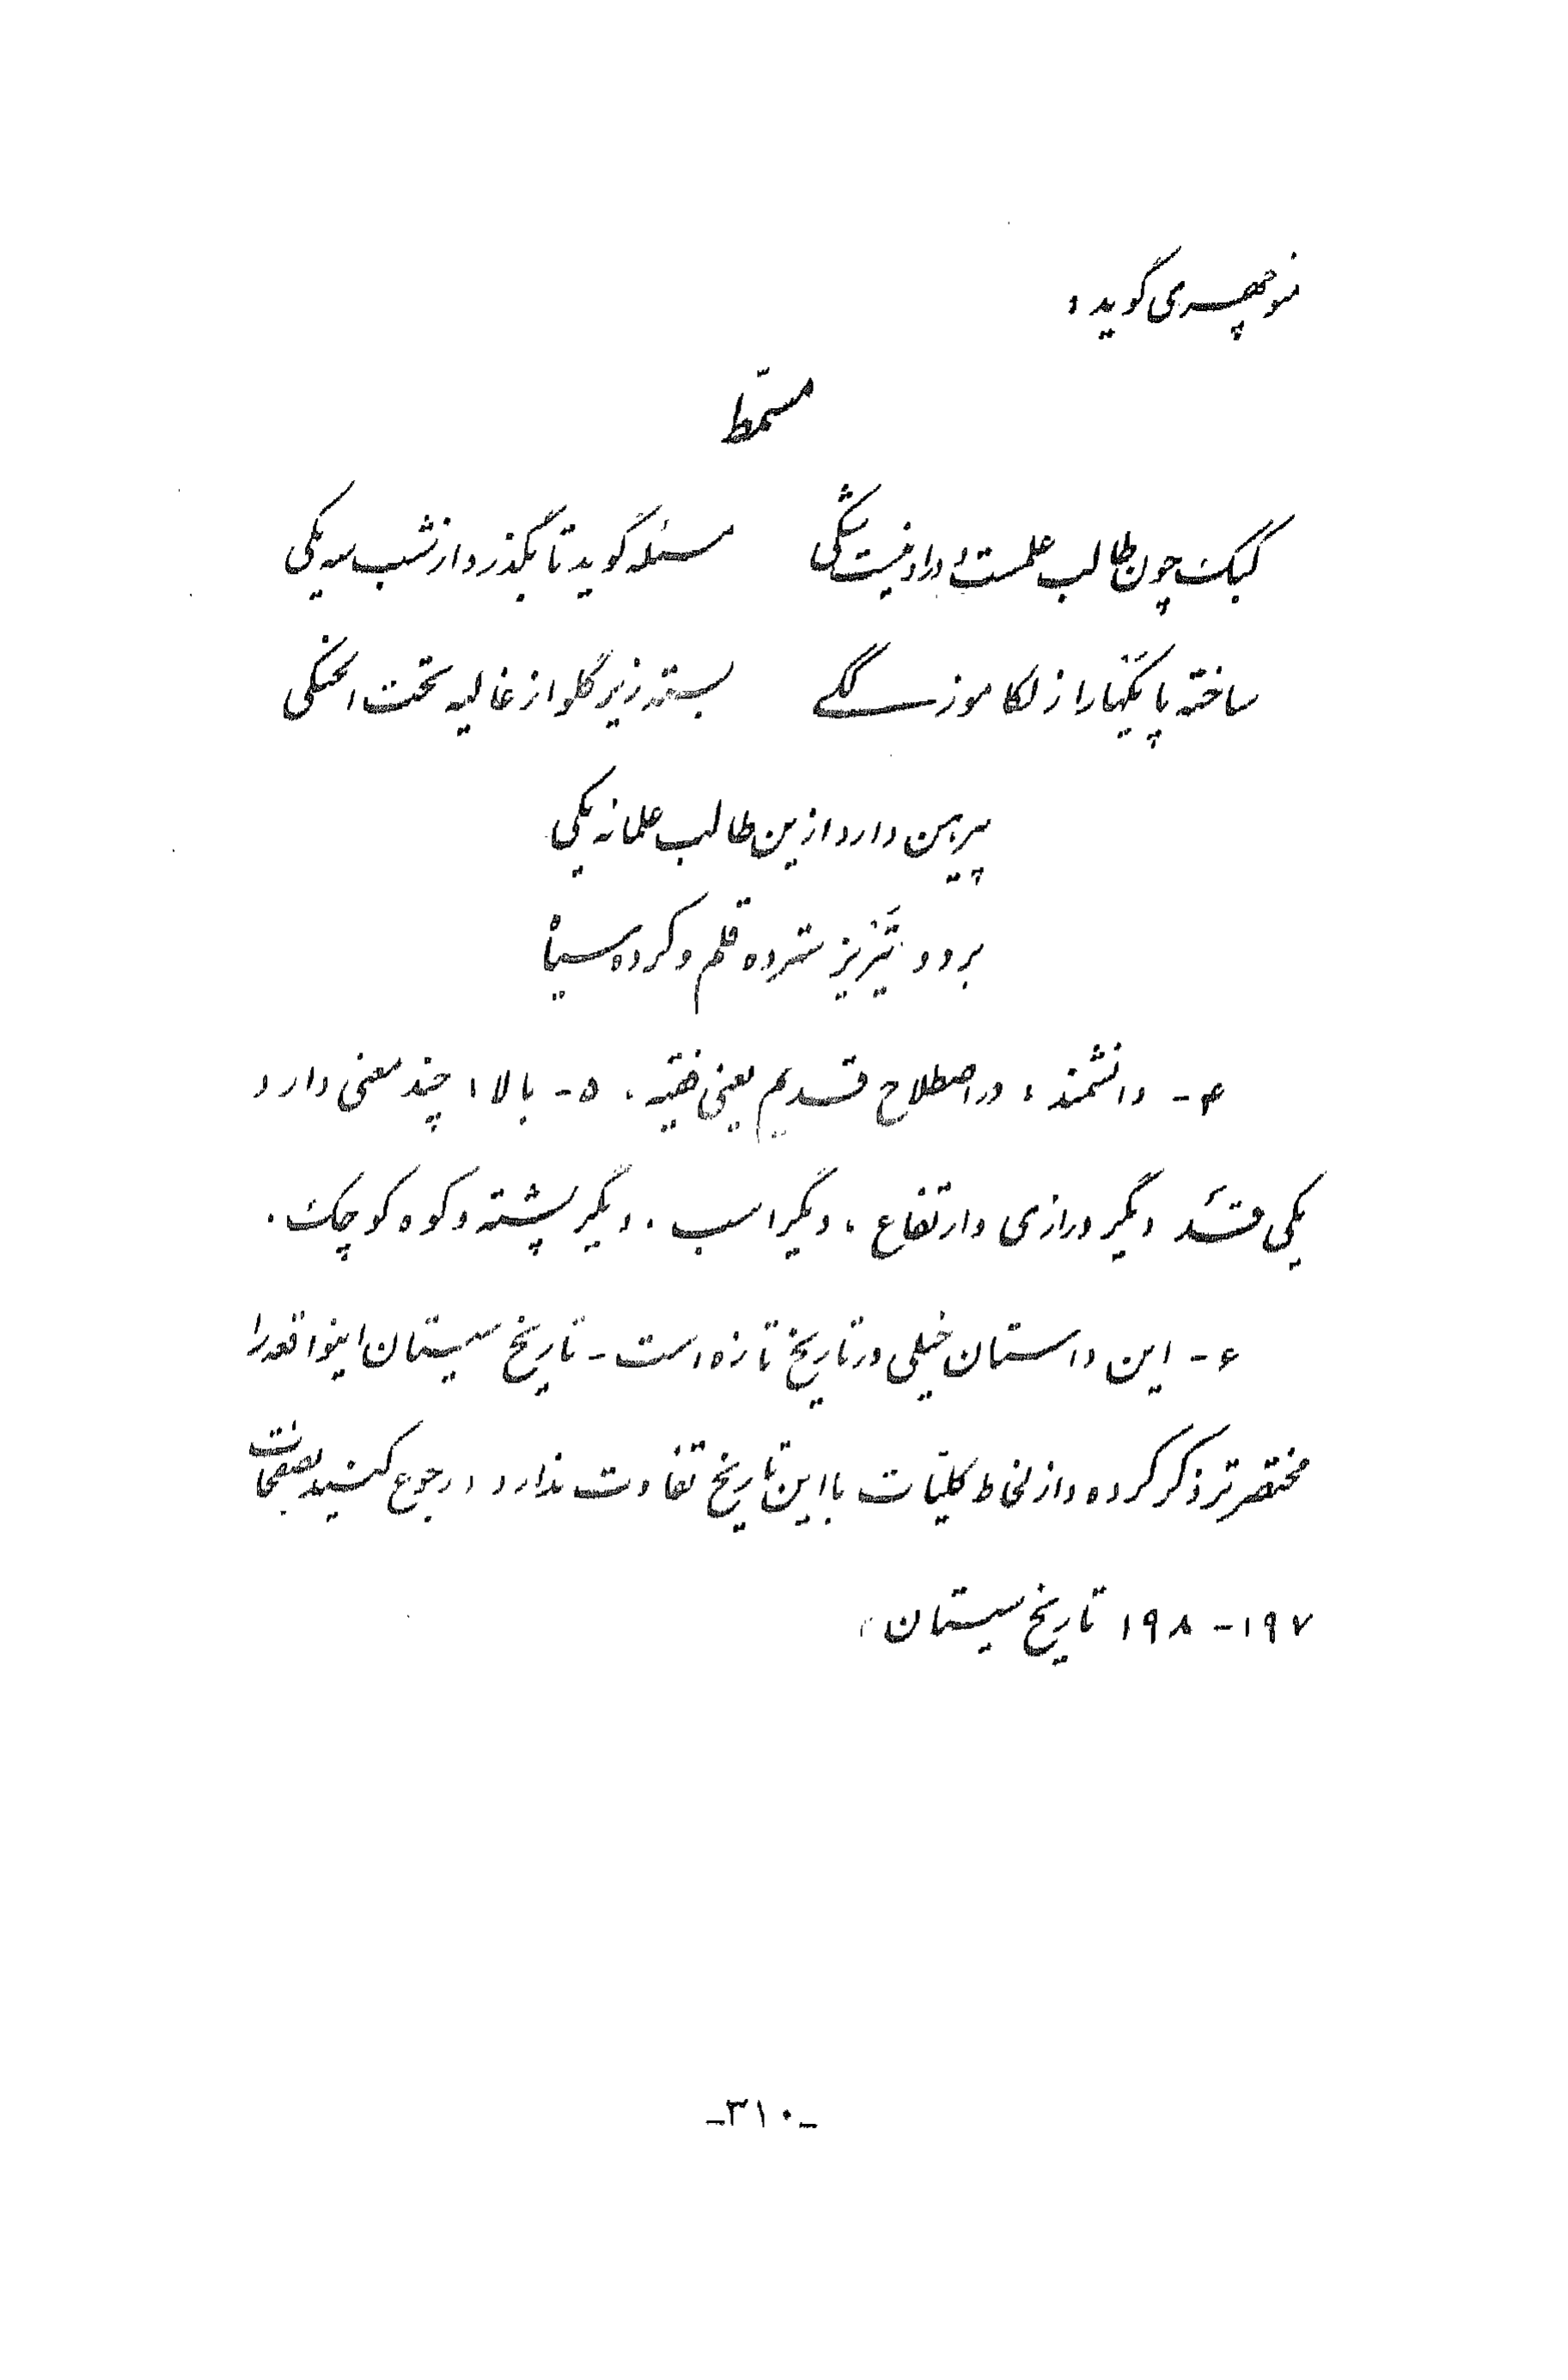 منوچهری گوید :
مسمّط
کبک چون طالب علمست و دراو نیست شکی    مسئله گوید تا بگذرد از شب سه یکی
ساخته پایکها را ز لکا موزگکی    بسته زیر گلو از غالیه تحت الحنکی
پیرهن دارد ازین طالب علمانه یکی
بر دو تیریز سترده قلم و کرده سیاه
۴- دانشمند ، در اصطلاح قدیم یعنی فقیه . ۵- بالا ، چند معنی دارد
یکی قد دیگر درازی و ارتفاع ، دیگر اسب . دیگر پشته و کوه کوچک .
۶- این داستان خیلی در تاریخ تازه است - تاریخ سیستان اینواقعه را
مختصرتر ذکر کرده و از لحاظ کلیّات با این تاریخ تفاوت ندارد ، رجوع کنید بصفحات
۱۹۷- ۱۹۸ تاریخ سیستان
-۳۱۰-